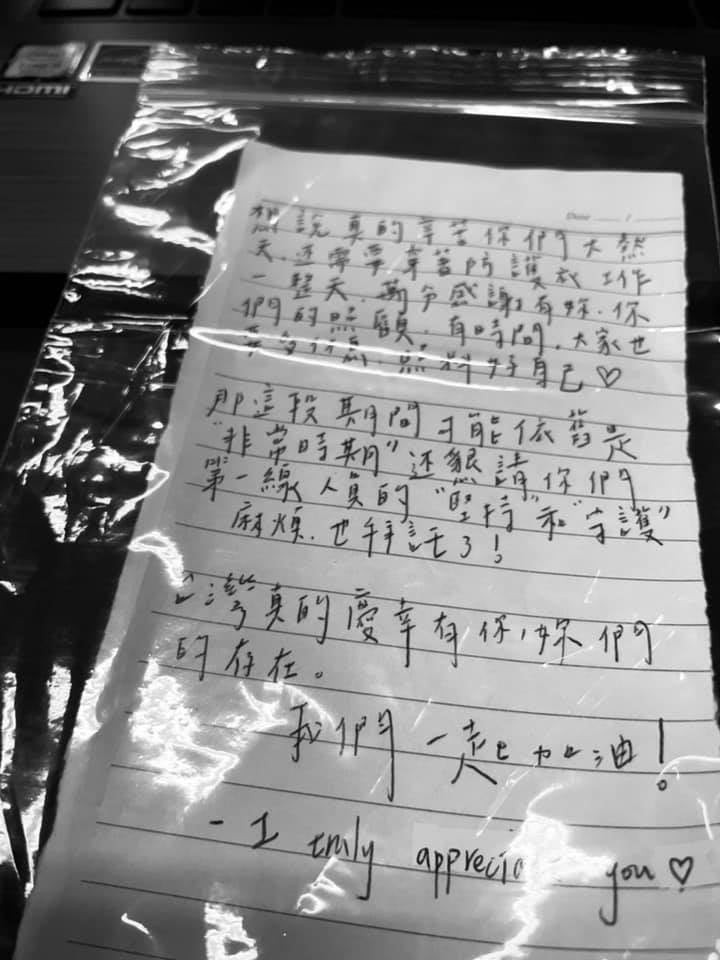 HOMI
Date
想說真的辛苦你們大熱
天.还需要穿著防護衣工作
一整天.萬分感謝有妳.你
們的照顧.有時間.大家也
要多休息.照料好自己♡
那這段期間可能依舊是
"非常時期"还懇請你們
第一線人員的"堅持"和"守護"
麻煩.也拜託了!
台灣真的慶幸有你,妳們
的存在。
我們一起加油!
- I truly apprecia you♡